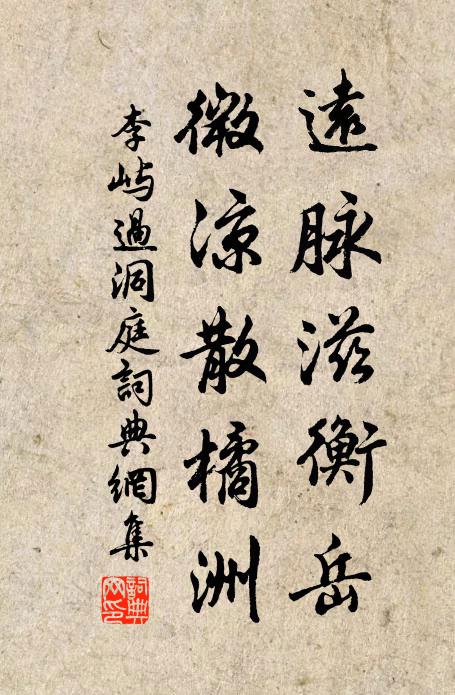 遠脉滋衡岳
微涼散橘洲
李屿過洞庭詞典網集
詞典
网印